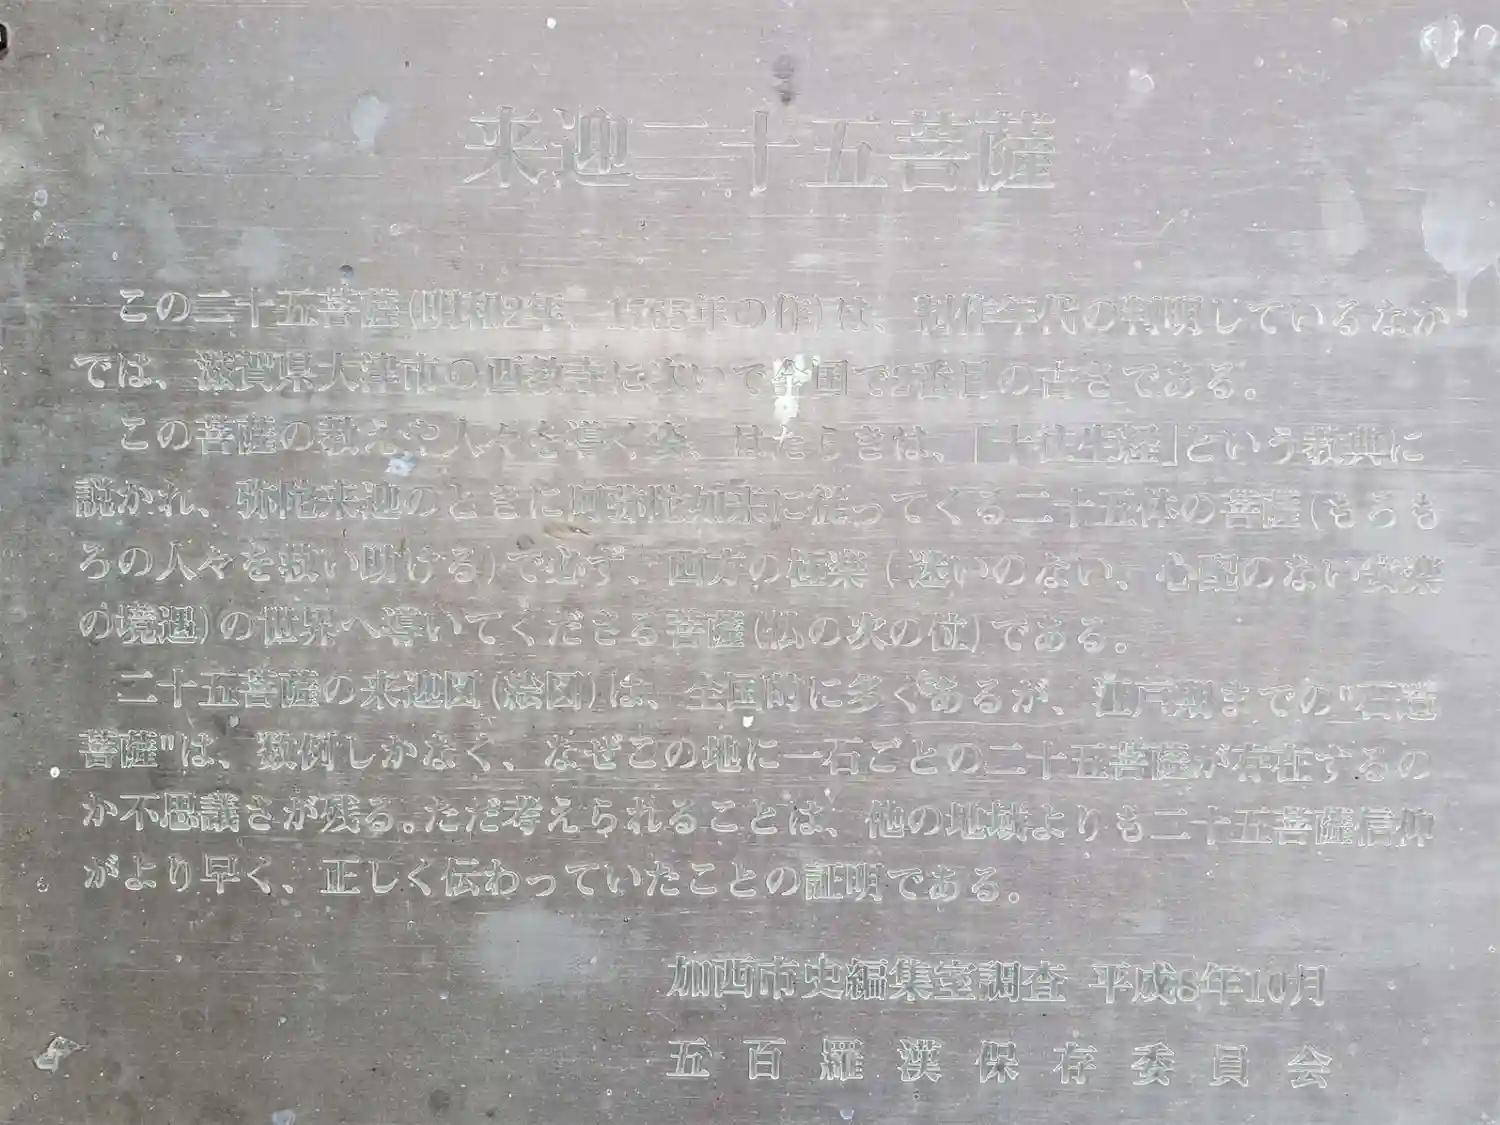 来迎二十五菩薩
この二十五菩薩(明和2年、1765年の作)は、制作年代の判明しているなか
では、滋賀県大津市の西教寺に次いで全国で2番目の古さである。
この菩薩の教えや人々を導く姿、はたらきは、「十往生経」という教典に
説かれ、弥陀来迎のときに阿弥陀如来に従ってくる二十五体の菩薩(もろも
ろの人々を救い助ける)で必ず、西方の極楽(迷いのない、心配のない安楽
の境遇)の世界へ導いてくださる菩薩(仏の次の位)である。
二十五菩薩の来迎図(絵図)は、全国的に多くあるが、江戸期までの"石造
菩薩"は、数例しかなく、なぜこの地に一石ごとの二十五菩薩が存在するの
か不思議さが残る。ただ考えられることは、他の地域よりも二十五菩薩信仰
がより早く、正しく伝わっていたことの証明である。
加西市史編集室調査 平成8年10月
五百羅漢保存委員会